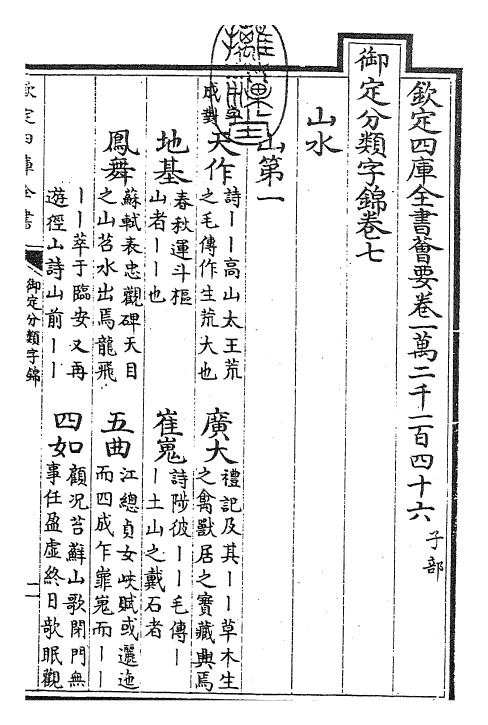 欽定四庫全書薈要卷一萬二千一百四十六 子部
御定分類字錦卷七
山水
山第一
成對
天作 詩丨丨高山太王荒
之毛傳作生荒大也
廣大 禮記及其丨丨草木生
之禽獸居之寶藏興焉
地基 春秋運斗樞
山者丨丨也
崔嵬 詩陟彼丨丨毛傳丨
丨土山之戴石者
鳳舞 蘇軾表忠觀碑天目
之山苕水出焉龍飛
丨丨萃于臨安又再
遊徑山詩山前丨丨
五曲 江總貞女峽賦或邐迤
而四成乍嶵嵬而丨丨
四如 顧況苔蘚山歌閉門無
事任盈虛終日歌眠觀
欽定四庫全書
御定分類字錦